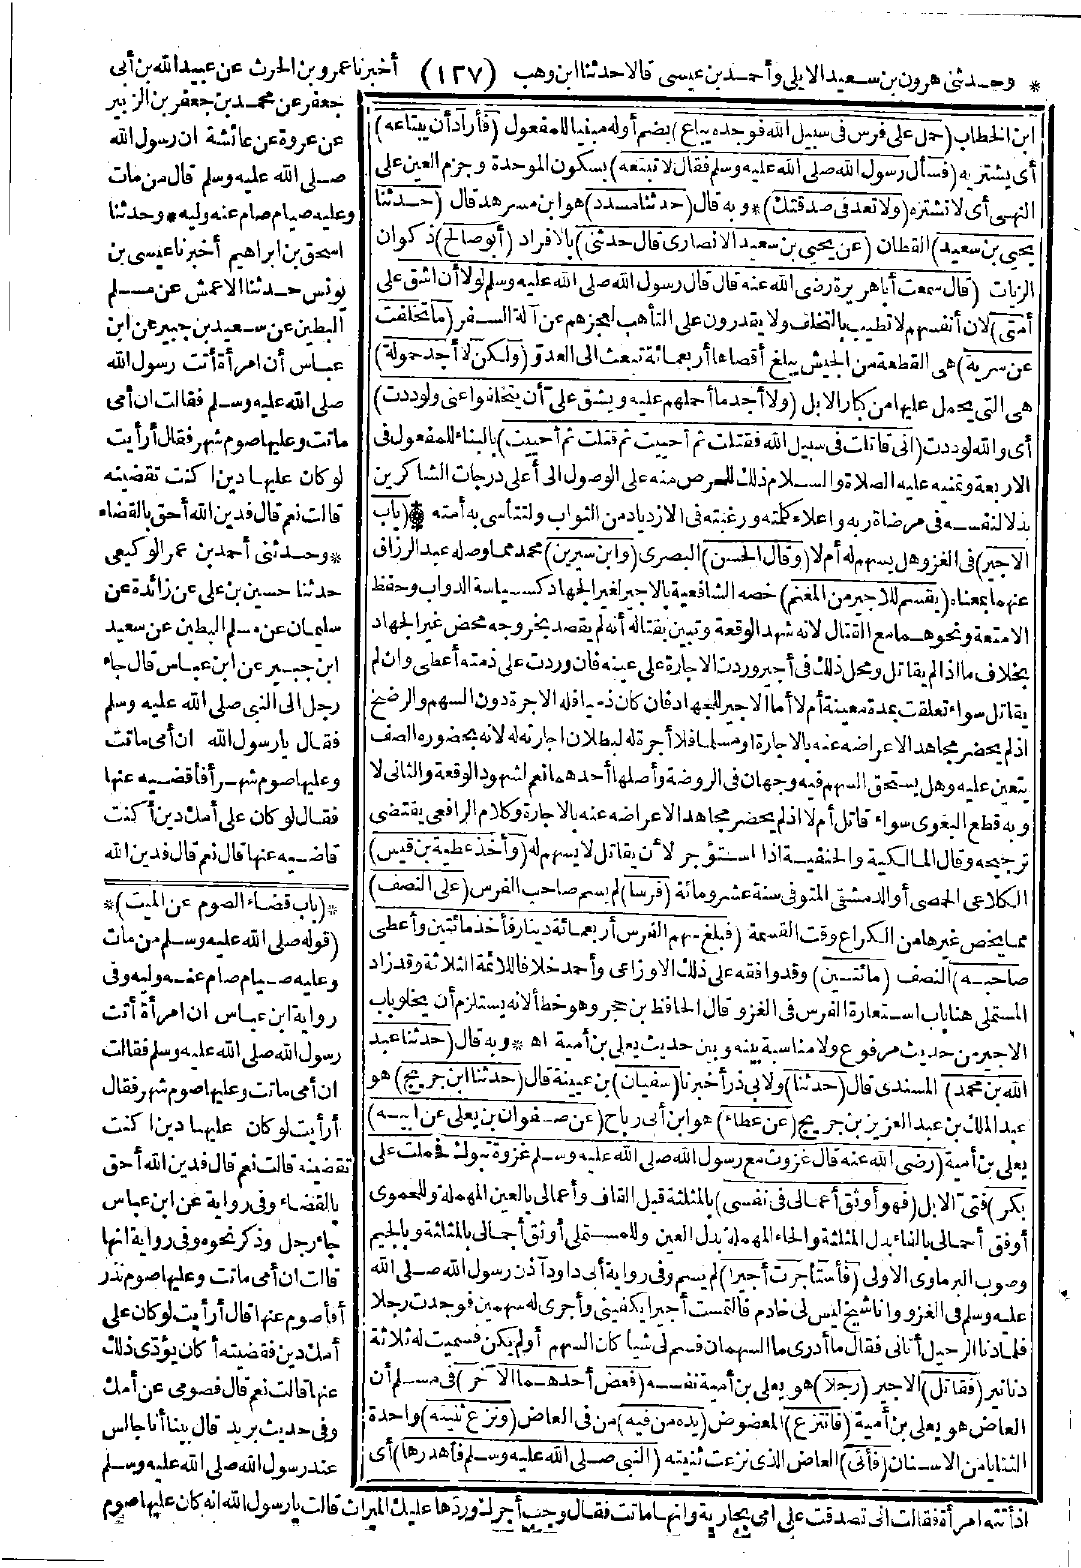 * وحدثني هرون بن سعيد الايلي وأحمد بن عيسى قالا حدثنا ابن وهب (١٢٧) أخبرنا عمرو بن الحرث عن عبيد الله بن أبي
جعفر عن محمد بن جعفر بن الزبير
عن عروة عن عائشة ان رسول الله
صلى الله عليه وسلم قال من مات
وعليه صيام صام عنه وليه * وحدثنا
اسحق بن ابراهيم أخبرنا عيسى بن
يونس حدثنا الاعمش عن مسلم
البطين عن سعيد بن جبير عن ابن
عباس أن امرأة أتت رسول الله
صلى الله عليه وسلم فقالت ان أمي
ماتت وعليها صوم شهر فقال أرأيت
لو كان عليها دين أكنت تقضينه
قالت نعم قال فدين الله أحق بالقضاء
* وحدثني أحمد بن عمر الوكيعي
حدثنا حسين بن علي عن زائدة عن
سليمان عن مسلم البطين عن سعيد
ابن جبير عن ابن عباس قال جاء
رجل الى النبي صلى الله عليه وسلم
فقال يا رسول الله ان أمي ماتت
وعليها صوم شهر أفأقضيه عنها
فقال لو كان على أمك دين أكنت
قاضيه عنها قال نعم قال فدين الله
* (باب قضاء الصوم عن الميت) *
(قوله صلى الله عليه وسلم من مات
وعليه صيام صام عنه وليه وفي
رواية ابن عباس ان امرأة أتت
رسول الله صلى الله عليه وسلم فقالت
ان أمي ماتت وعليها صوم شهر فقال
أرأيت لو كان عليها دين أكنت
تقضينه قالت نعم قال فدين الله أحق
بالقضاء وفي رواية عن ابن عباس
جاء رجل وذكر نحوه وفي رواية انها
قالت ان أمي ماتت وعليها صوم نذر
أفأصوم عنها قال أرأيت لو كان على
أمك دين فقضيته أكان يؤدى ذلك
عنها قالت نعم قال فصومي عن أمك
وفي حديث بريد قال بينا أنا جالس
عند رسول الله صلى الله عليه وسلم
ابن الخطاب (حمل على فرس في سبيل الله فوجده يباع) بضم أوله مبنيا للمفعول (فأراد أن يبتاعه)
أي يشتريه (فسأل رسول الله صلى الله عليه وسلم فقال لا تبتعه) بسكون الموحدة وجزم العين على
النهي أي لا تشتره (ولا تعد في صدقتك) * وبه قال (حدثنا مسدد) هو ابن مسرهد قال (حدثنا
يحيى بن سعيد) القطان (عن يحيى بن سعيد الانصاري قال حدثني) بالافراد (أبو صالح) ذكوان
الزيات (قال سمعت أبا هريرة رضي الله عنه قال قال رسول الله صلى الله عليه وسلم لولا أن اشق على
أمتي) لان أنفسهم لا تطيب بالتخلف ولا يقدرون على التأهب لعجزهم عن آلة السفر (ما تخلفت
عن سرية) هي القطعة من الجيش يبلغ أقصاها أربعمائة تبعث الى العدو (ولكن لا أجد حمولة)
هي التي يحمل عليها من كبار الابل (ولا أجد ما أحملهم عليه ويشق على أن يتخلفوا عني ولوددت)
أي والله لوددت (اني قاتلت في سبيل الله فقتلت ثم أحييت ثم قتلت ثم أحييت) بالبناء للمفعول في
الاربعة وتمنيه عليه الصلاة والسلام ذلك للحرص منه على الوصول الى أعلى درجات الشاكرين
بذلا لنفسه في مرضاة ربه واعلاء كلمته ورغبته في الازدياد من الثواب ولتتأسى به أمته * (باب
الاجير) في الغزو هل يسهم له أم لا (وقال الحسن) البصري (وابن سيرين) محمد مما وصله عبد الرزاق
عنهما بمعناه (يقسم للاجير من المغنم) خصه الشافعية بالاجير لغير الجهاد كسياسة الدواب وحفظ
الامتعة ونحوهما مع القتال لانه شهد الوقعة وتبين بقتاله أنه لم يقصد بخروجه محض غير الجهاد
بخلاف ما اذا لم يقاتل ومحل ذلك في أجير وردت الاجارة على عينه فان وردت على ذمته أعطى وان لم
يقاتل سواء تعلقت بمدة معينة أم لا أما الاجير للجهاد فان كان ذميا فله الاجرة دون السهم والرضخ
اذ لم يحضر مجاهدا لاعراضه عنه بالاجارة او مسلما فلا أجرة له لبطلان اجارته له لانه بحضوره الصف
يتعين عليه وهل يستحق السهم فيه وجهان في الروضة وأصلها أحدهما نعم لشهود الوقعة والثاني لا
وبه قطع البغوي سواء قاتل أم لا اذ لم يحضر مجاهدا لاعراضه عنه بالاجارة وكلام الرافعي يقتضي
ترجيحه وقال المالكية والحنفية اذا استؤجر لأن يقاتل لا يسهم له (وأخذ عطية بن قيس)
الكلاعي الحمصي أو الدمشقي المتوفى سنة عشر ومائة (فرسا) لم يسم صاحب الفرس (على النصف)
مما يخص غيرها من الكراع وقت القسمة (فبلغ سهم الفرس أربعمائة دينار فأخذ مائتين وأعطى
صاحبه) النصف (مائتين) وقد وافقه على ذلك الاوزاعي وأحمد خلافا للائمة الثلاثة وقد زاد
المستملي هنا باب استعارة الفرس في الغزو قال الحافظ بن حجر وهو خطأ لانه يستلزم أن يخلو باب
الاجير من حديث مرفوع ولا مناسبة بينه وبين حديث يعلى بن أمية اه * وبه قال (حدثنا عبد
الله بن محمد) المسندي قال (حدثنا) ولابي ذر أخبرنا (سفيان) بن عيينة قال (حدثنا ابن جريج) هو
عبد الملك بن عبد العزيز بن جريج (عن عطاء) هو ابن أبي رباح (عن صفوان بن يعلى عن ابيه)
يعلى بن أمية (رضي الله عنه قال غزوت مع رسول الله صلى الله عليه وسلم غزوة تبوك فحملت على
بكر) فتى الابل (فهو أوثق أعمالي في نفسي) بالمثلثة قبل القاف وأعمالي بالعين المهملة وللحموي
أوفق أحمالي بالفاء بدل المثلثة والحاء المهملة بدل العين وللمستملي أوثق أجمالي بالمثلثة وبالجيم
وصوب البرماوي الاولى (فأستأجرت أجيرا) لم يسم وفي رواية أبي داود آذن رسول الله صلى الله
عليه وسلم في الغزو وانا شيخ ليس لي خادم فالتمست أجيرا يكفيني وأجري له سهمين فوجدت رجلا
فلما دنا الرحيل أتاني فقال ما أدري ما السهمان فسم لي شيا كان السهم أو لم يكن فسميت له ثلاثة
دنانير (فقاتل) الاجير (رجلا) هو يعلى بن أمية نفسه (فعض أحدهما الآخر) في مسلم أن
العاض هو يعلى بن أمية (فانتزع) المعضوض (يده من فيه) من في العاض (ونزع ثنيته) واحدة
الثنايا من الاسنان (فأتى) العاض الذي نزعت ثنيته (النبي صلى الله عليه وسلم فأهدرها) أي
اذ أتته امرأة فقالت اني تصدقت على امي بجارية وانها ماتت فقال وجب أجرك وردها عليك الميراث قالت يا رسول الله انه كان عليها صوم